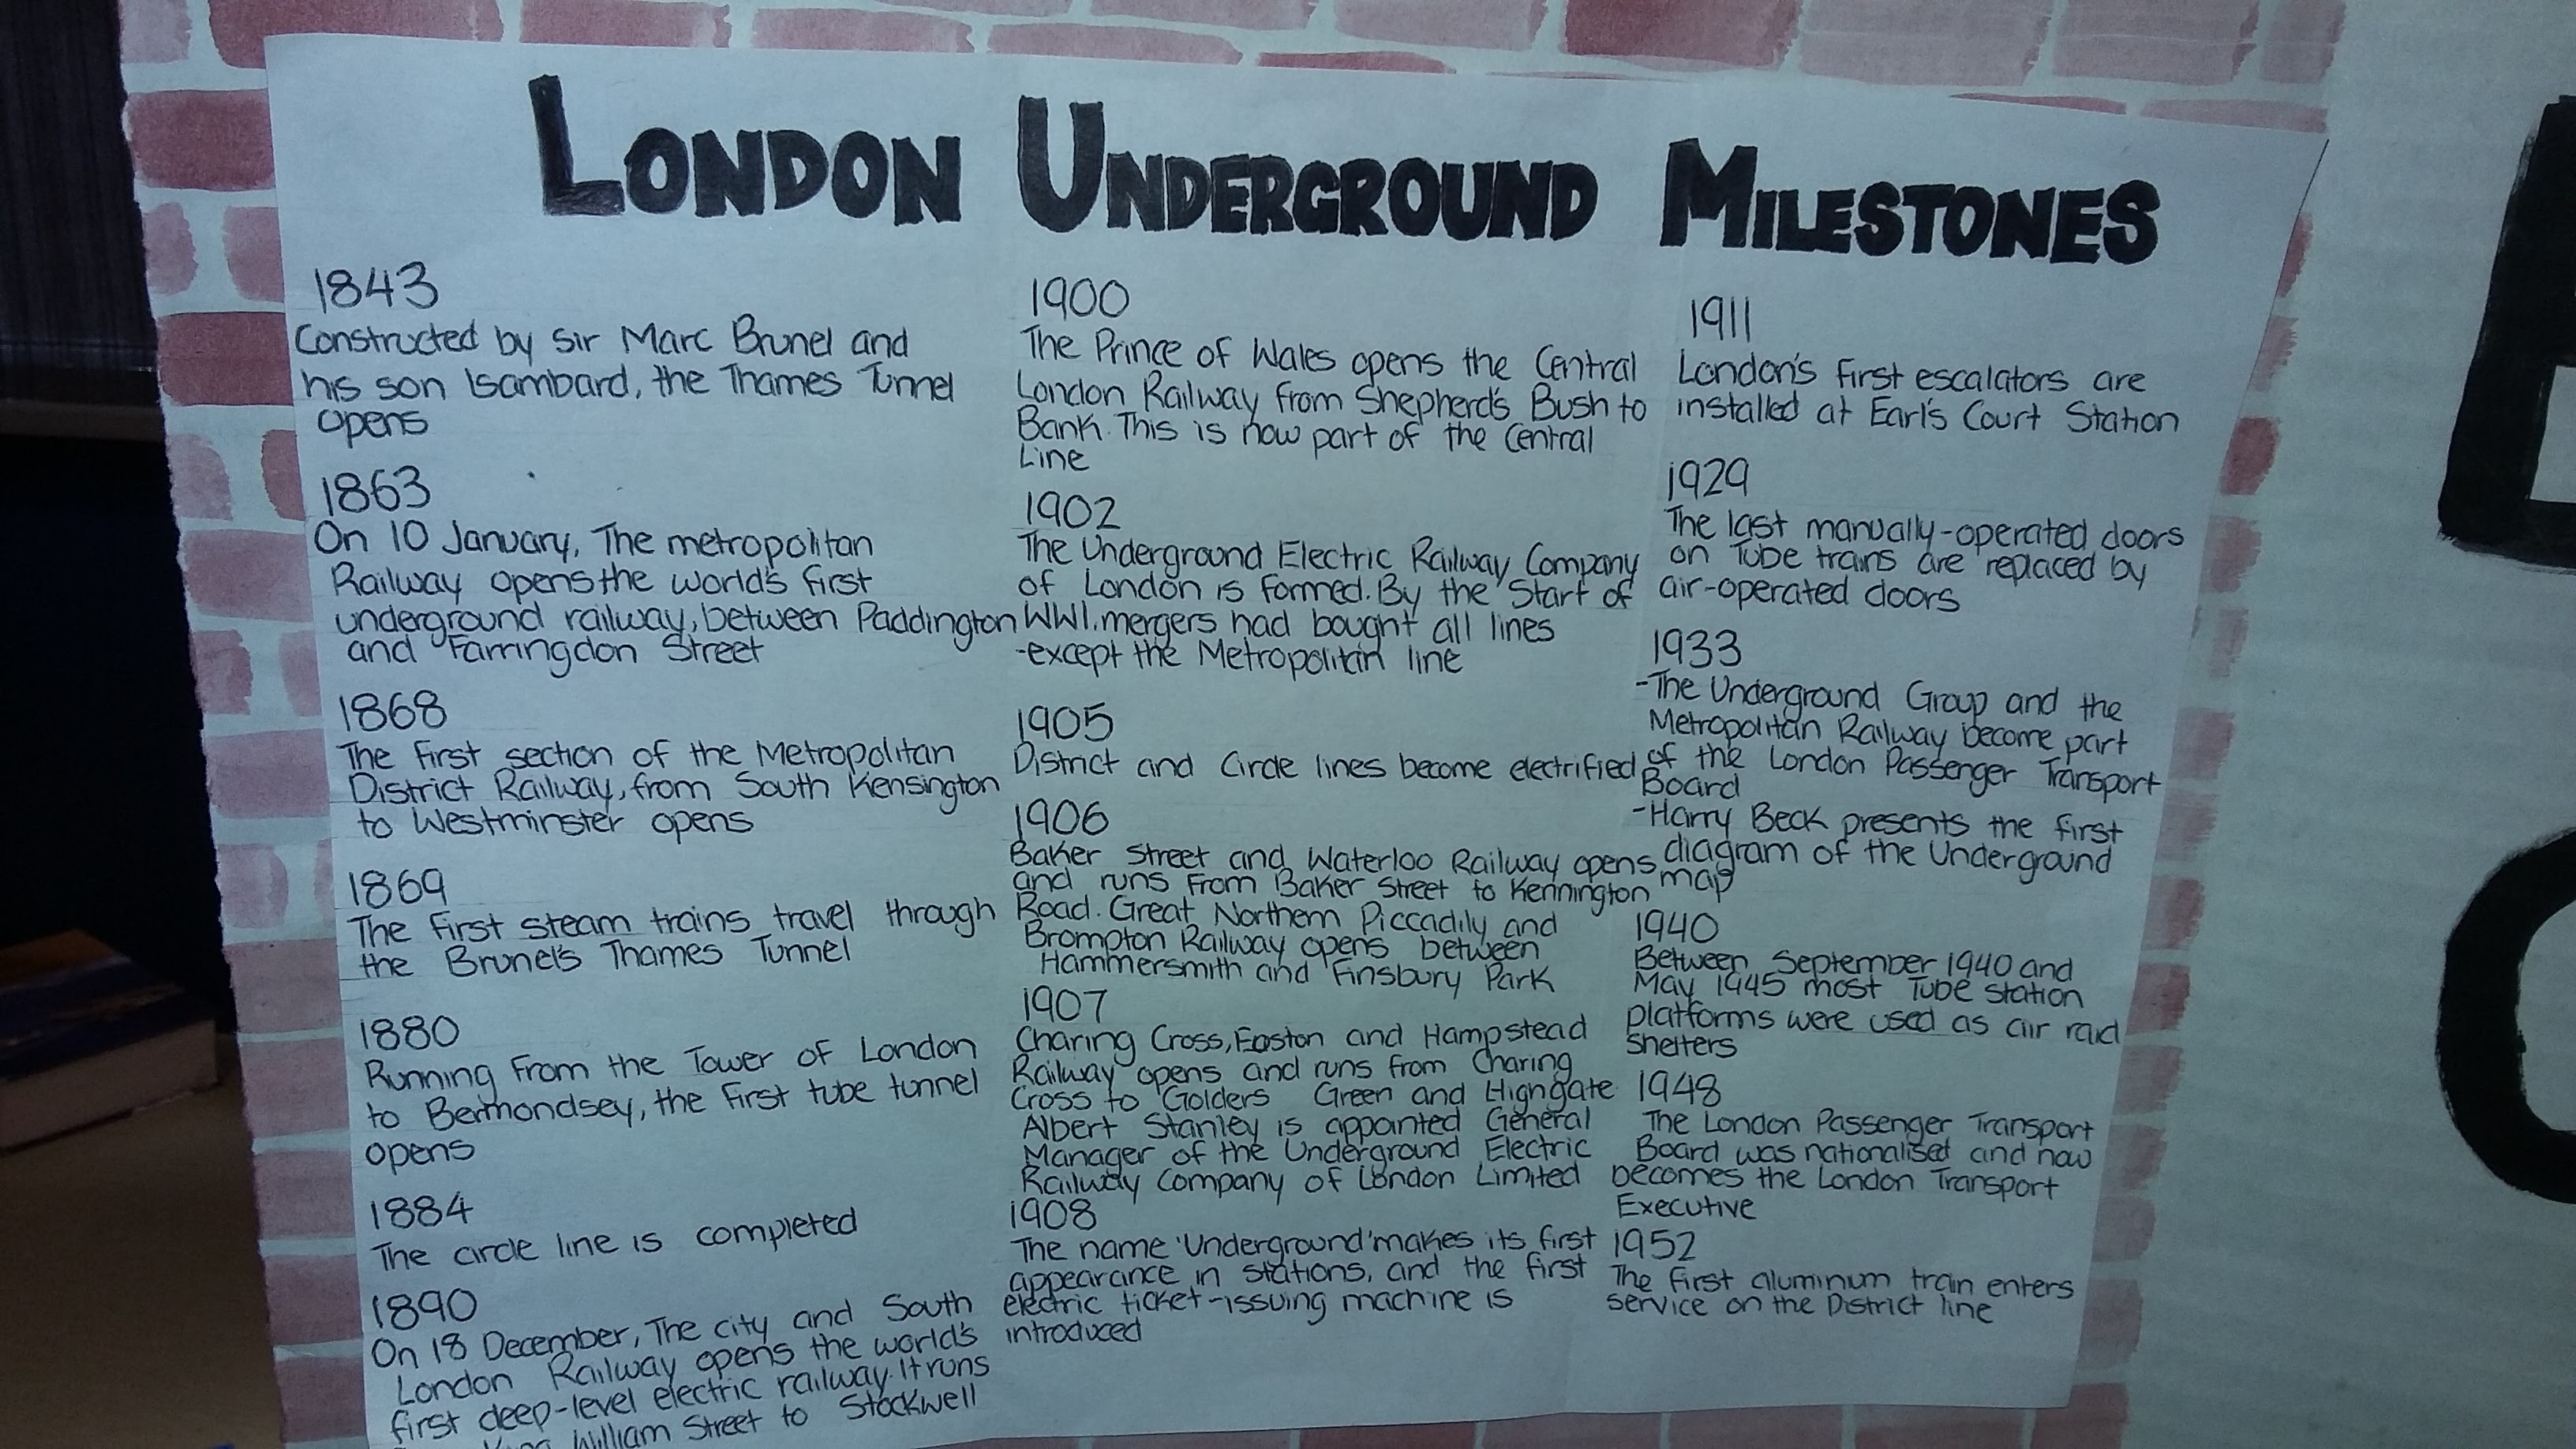 LONDON UNDERGROUND MILESTONES
1843
Constructed by Sir Marc Brunel and
his son Isambard, the Thames Tunnel
opens
1863
On 10 January, The metropolitan
Railway opens the world's first
underground railway, between Paddington
and Farringdon Street
1868
The first section of the Metropolitan
District Railway, from South Kensington
to Westminster opens
1869
The first steam trains travel through
the Brunel's Thames Tunnel
1880
Running from the Tower of London
to Bermondsey, the first tube tunnel
opens
1884
The circle line is completed
1890
On 18 December, The city and South
London Railway opens the world's
first deep-level electric railway. It runs
William Street to Stockwell
1900
The Prince of Wales opens the Central
London Railway from Shepherd's Bush to
Bank. This is now part of the Central
Line
1902
The Underground Electric Railway Company
of London is formed. By the Start of
WWI, mergers had bought all lines
-except the Metropolitin line
1905
District and Circle lines become electrified
1906
Baker Street and Waterloo Railway opens
and runs from Baker Street to Kennington
Road. Great Northern Piccadily and
Brompton Railway opens between
Hammersmith and Finsbury Park
1907
Charing Cross, Easton and Hampstead
Railway opens and runs from Charing
Cross to Golders Green and Highgate
Albert Stanley is appointed General
Manager of the Underground Electric
Railway Company of London Limited
1908
The name 'Underground' makes its first
appearance in stations, and the first
electric ticket-issuing machine is
introduced
1911
London's first escalators are
installed at Earl's Court Station
1929
The last manually-operated doors
on Tube trains are replaced by
air-operated doors
1933
-The Underground Group and the
Metropolitan Railway become part
of the London Passenger Transport
Board
-Harry Beck presents the first
diagram of the Underground
map
1940
Between September 1940 and
May 1945 most Tube station
platforms were used as air raid
shelters
1948
The London Passenger Transport
Board was nationalised and now
becomes the London Transport
Executive
1952
The first aluminum train enters
service on the District line